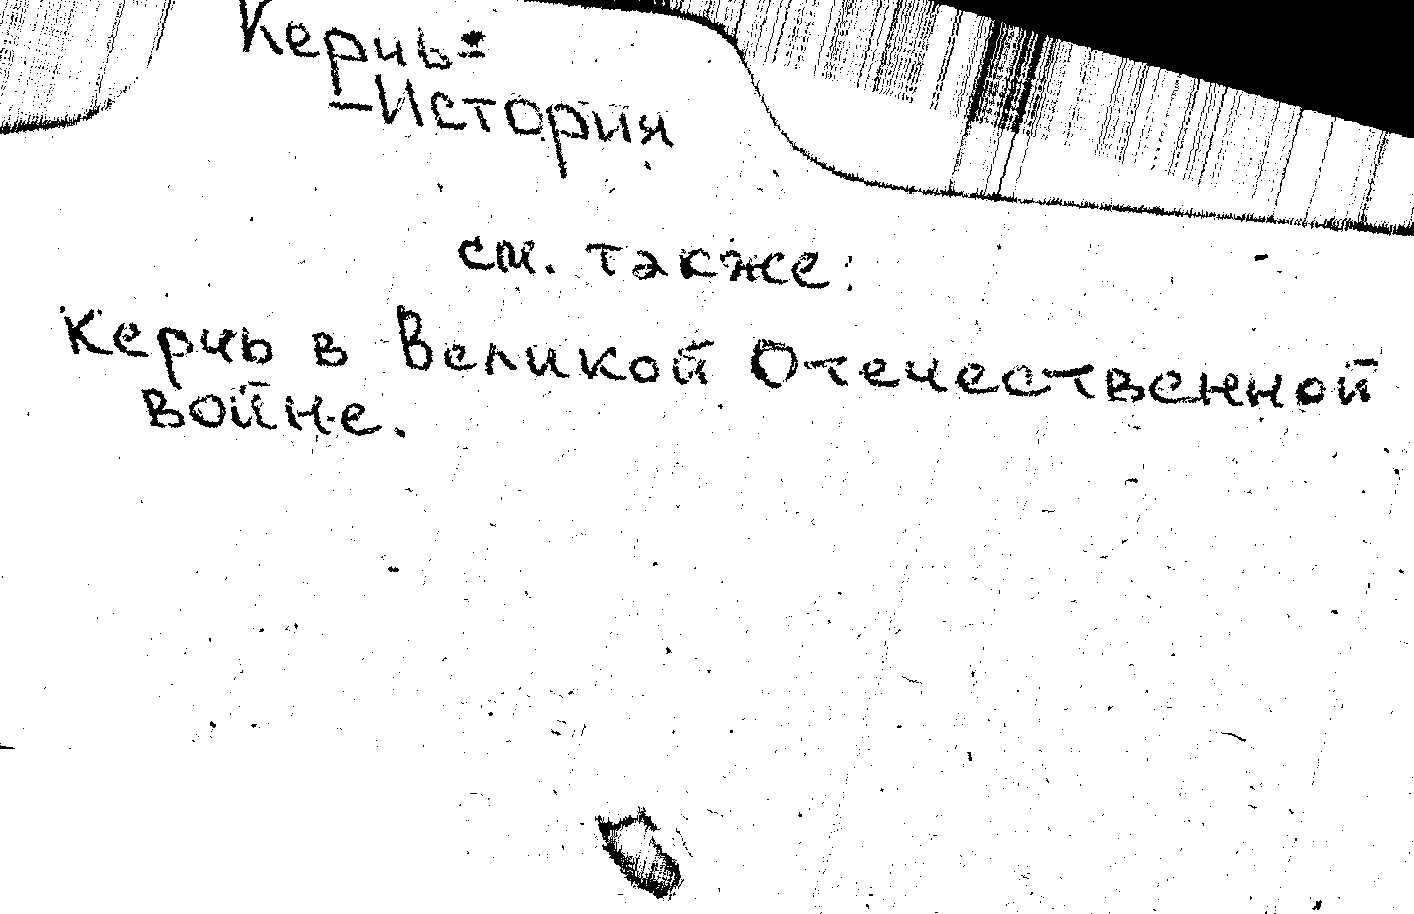 Керчь=
—История
см. также:
Керчь в Великой Отечественной
войне.